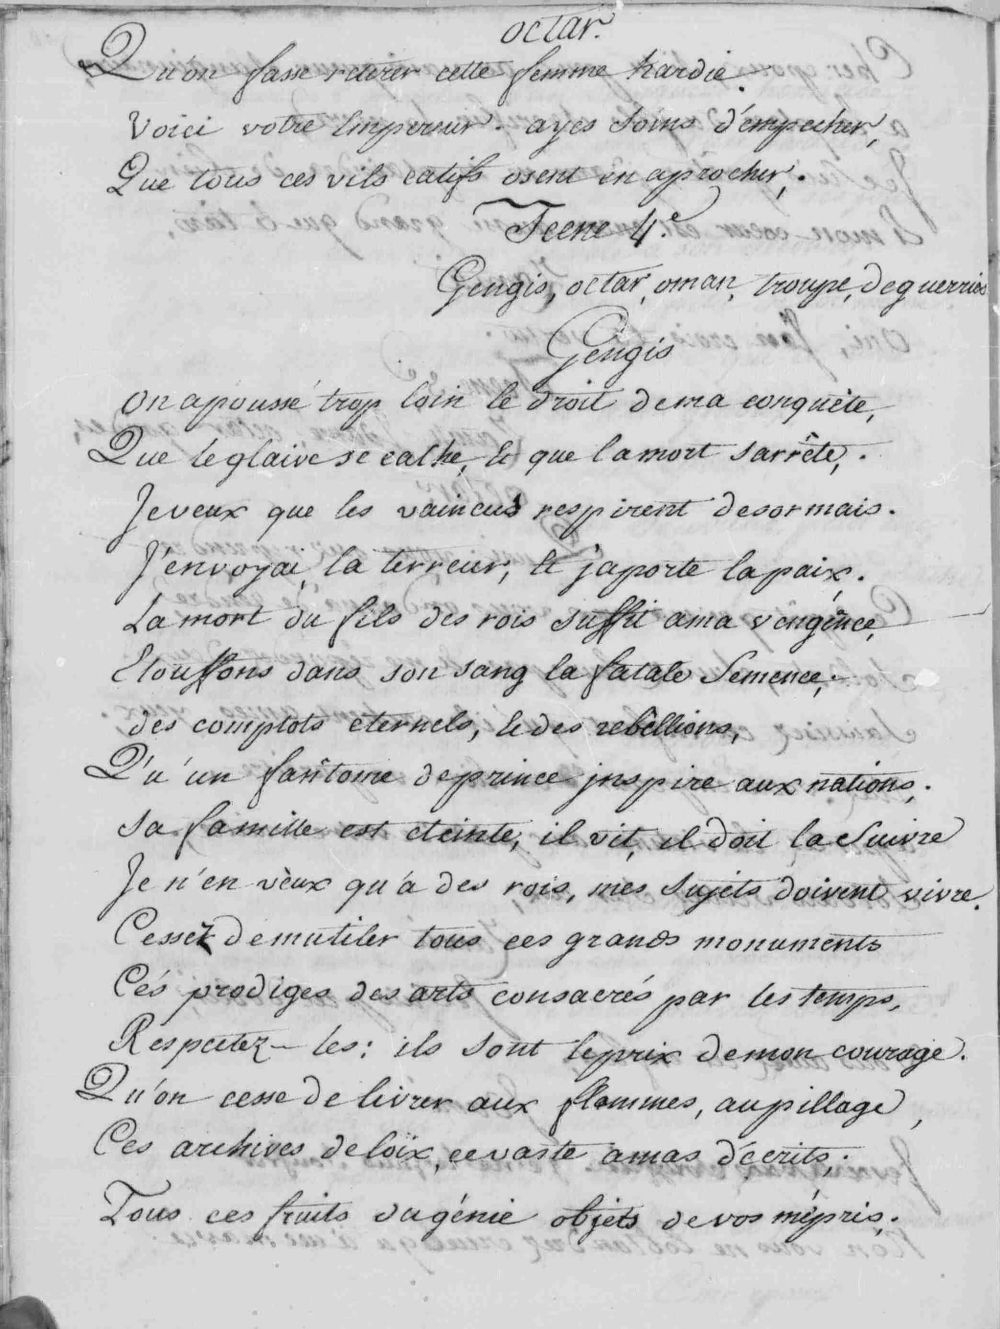 octar.
Qu'on fasse retirer cette femme hardie.
Voici votre Empereur. ayes soins d'empecher,
Que tous ces vils catifs osent en aprocher,.
Scene 4.e
Gengis, octar, oman, troupe, de guerries
Gengis
on a poussé trop loin le droit de ma conquête,
Que le glaive se cathe, & que la mort s'arrête,.
Je veux que les vaincus respirent desormais.
J'envoyai, la terreur, & j'aporte la paix.
La mort du fils des rois suffit a ma vengênce,
Etouffons dans son sang la fatale Semence,.
des complots eternels, & des rebèllions,
Qu'un fantome de prince jnspire aux nations,.
sa famille est eteinte, il vit, il doit la Suivre
Je n'en vèux qu'a des rois, mes Sujets doivent vivre.
Cessez de mutiler tous ces grands monuments
Cés prodiges des arts consacrés par les temps,
Respectez-les: ils sont le prix de mon courage.
Qu'on cesse de livrer aux flammes, au pillage,
Ces archives de loïx, ce vaste amas d'écrits,.
Tous ces fruits du génie objets de vos mépris,.